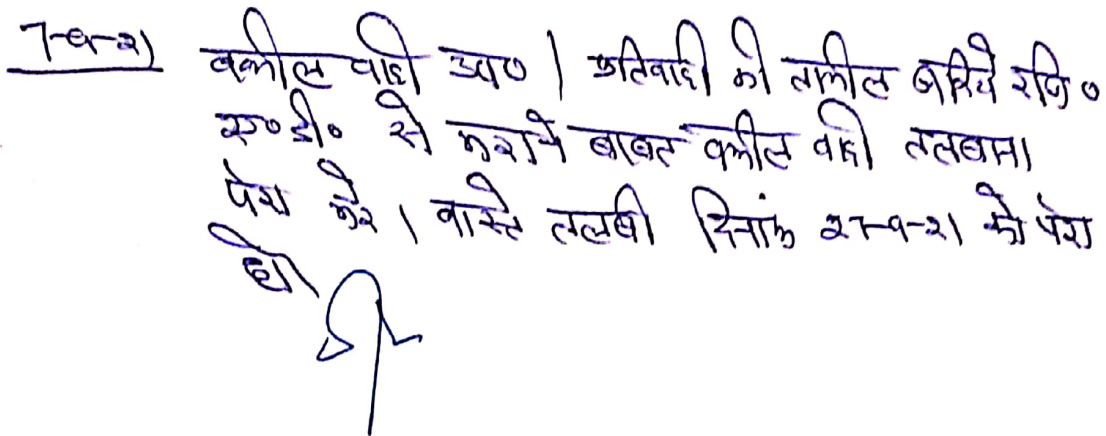 7-9-21 वकील वादी उप० | प्रतिवादी की तामील जरिये रजि०
ए० डी० से कराने बाबत वकील वादी तलबाना
पेश करे । वास्ते तलबी दिनांक 27-9-21 को पेश
हो।